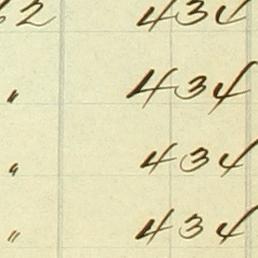 62 434
" 434
" 434
" 434